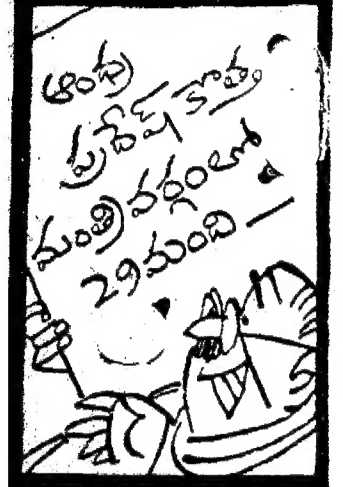 ఆంధ్ర
ప్రదేష్ కొత్త
మంత్రి వర్గంలో
29 మంది —